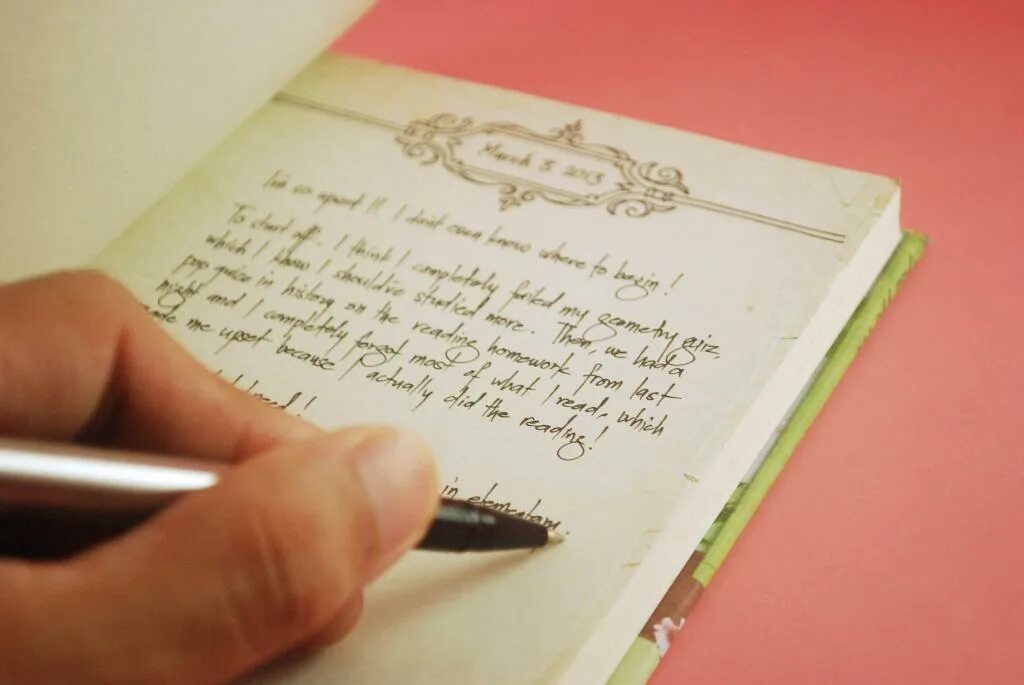 March 3 2013
I'm so upset!! I dont even know where to begin!
To start off. I think I completely failed my geometry quiz,
which I know I should've studied more. Then, we had a
pop quice in history on the reading homework from last
night and I completely forgot most of what I read, which
made me upset because I actually did the reading!
in elementary.